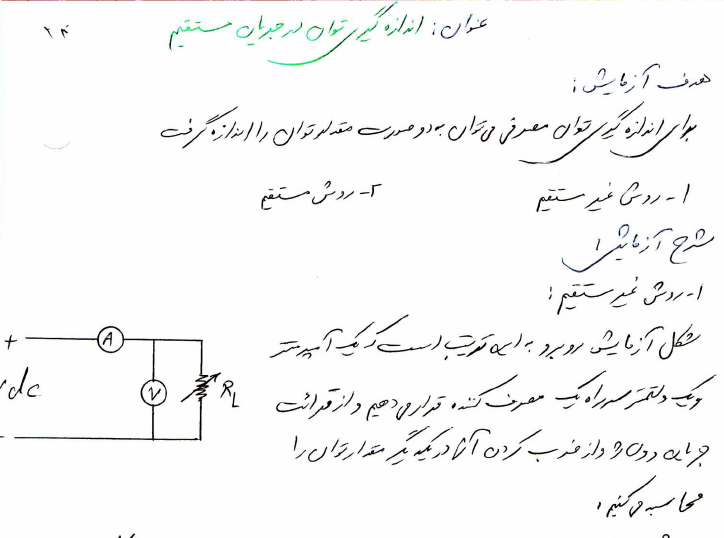 عنوان: اندازه گیری توان در جریان مستقیم
۲۴
هدف آزمایش:
برای اندازه گیری توان مصرفی می توان به دو صورت مقدار توان را اندازه گرفت
۱- روش غیر مستقیم ۲- روش مستقیم
شرح آزمایش:
۱- روش غیر مستقیم:
شکل آزمایش روبرو به این ترتیب است که یک آمپر متر
و یک ولتمتر سر راه یک مصرف کننده قرار می دهیم و از قرائت
جریان و ولتاژ و از ضرب کردن آنها در یکدیگر مقدار توان را
محاسبه می کنیم:
+ A
Vdc V RL
-